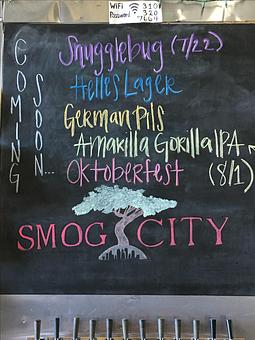 WiFi 310
Password 320
7664
COMING
SOON...
Snugglebug (7/22)
Helles Lager
German Pils
Amarilla Gorilla IPA
Oktoberfest (8/1)
SMOG CITY